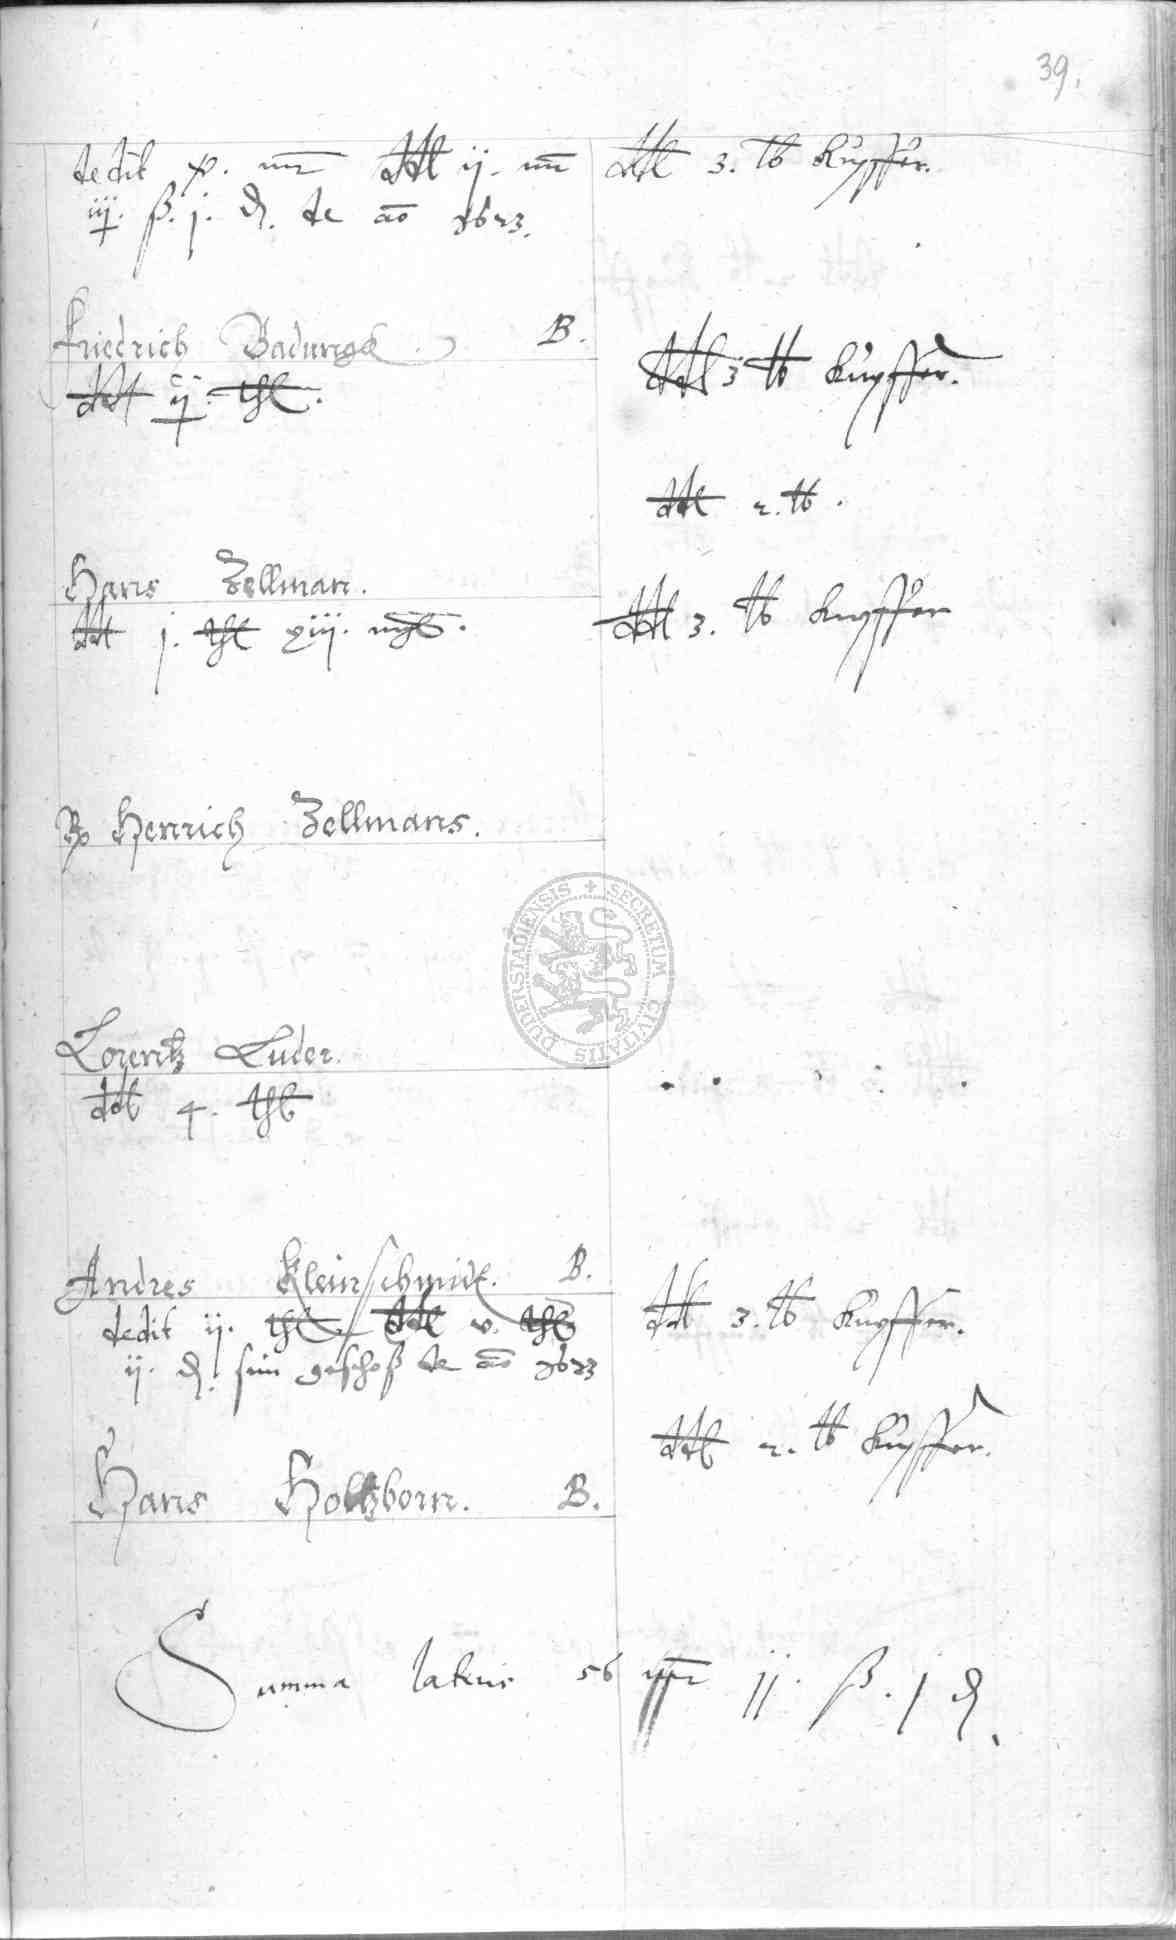 39.
dedit x. mr ddt ij. mr
iij. ß. j. d. de ao 1623.
ddt 3. lb Kupffer.
Friedrich Badungk B.
ddt ij. thl.
ddt 3 lb Kupffer.
ddt 2. lb.
Hans Zellman.
ddt j. thl xiij. mgl.
ddt 3. lb Kupffer
Henrich Zellmans.
DUDERSTADIENSIS + SECRETUM CIVITATIS
Lorentz Luder.
ddt 4. thl
Andres Kleinschmidt. B.
dedit ij. thl ddt v. thl
ij. d. sein geschoß de ao 1623
ddt 3. lb Kupffer.
ddt 2. lb Kupffer.
Hans Holtzborn. B.
Summa lateris 56 mr ij. ß. j d.